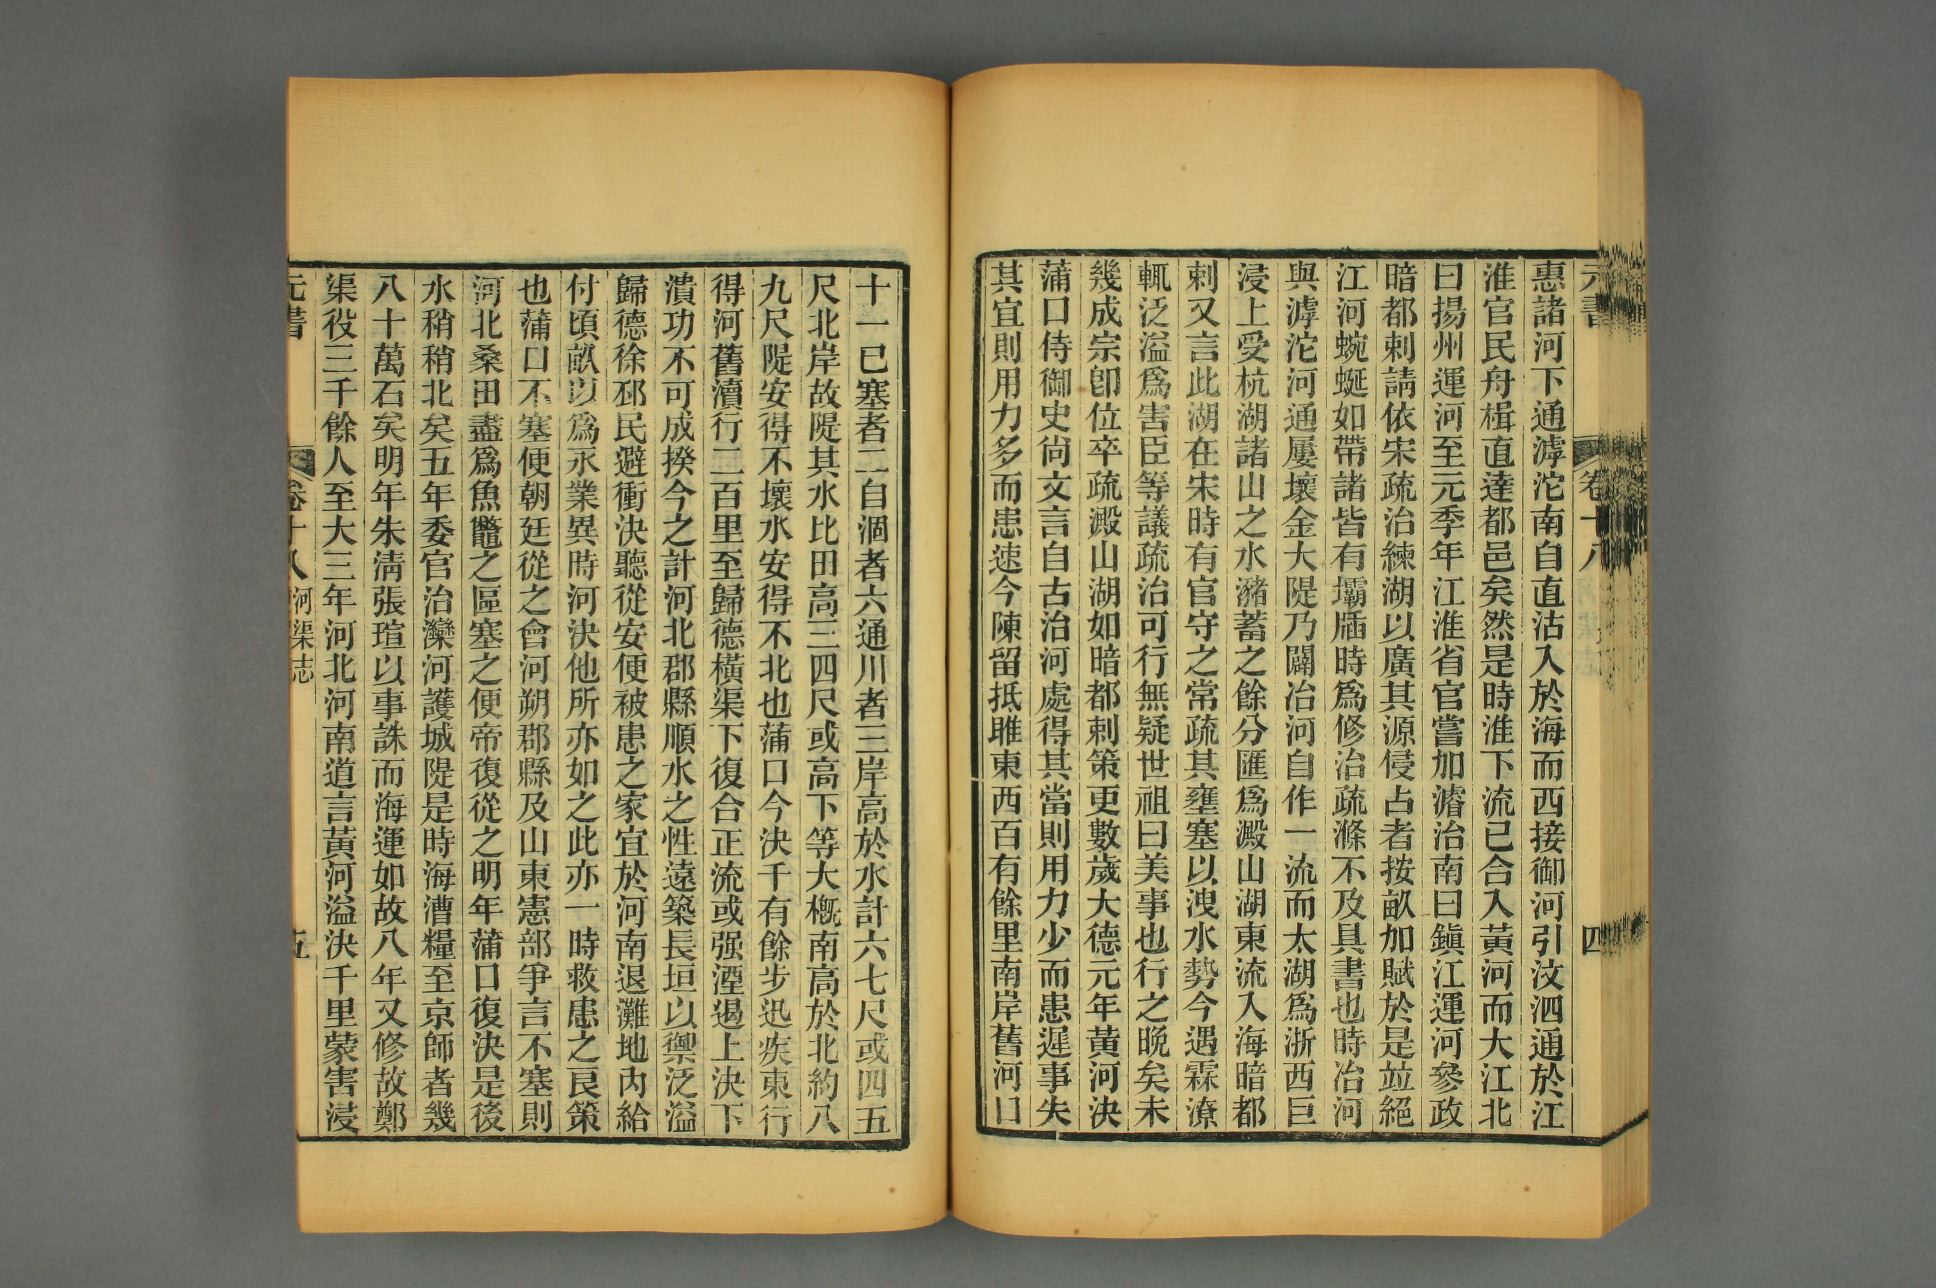 元書 卷十八 四
惠諸河下通滹沱南自直沽入於海而西接御河引汶泗通於江
淮官民舟楫直達都邑矣然是時淮下流已合入黃河而大江北
曰揚州運河至元季年江淮省官嘗加濬治南曰鎭江運河參政
暗都剌請依宋疏治練湖以廣其源侵占者按畝加賦於是竝絕
江河蜿蜒如帶諸皆有壩牐時爲修治疏滌不及具書也時冶河
與滹沱河通屢壞金大隄乃闢冶河自作一流而太湖爲浙西巨
浸上受杭湖諸山之水瀦蓄之餘分匯爲澱山湖東流入海暗都
剌又言此湖在宋時有官守之常疏其壅塞以洩水勢今遇霖潦
輒泛溢爲害臣等議疏治可行無疑世祖曰美事也行之晚矣未
幾成宗卽位卒疏澱山湖如暗都剌策更數歲大德元年黃河決
蒲口侍御史尙文言自古治河處得其當則用力少而患遲事失
其宜則用力多而患速今陳留抵睢東西百有餘里南岸舊河口
十一已塞者二自涸者六通川者三岸高於水計六七尺或四五
尺北岸故隄其水比田高三四尺或高下等大槪南高於北約八
九尺隄安得不壞水安得不北也蒲口今決千有餘步迅疾東行
得河舊瀆行二百里至歸德橫渠下復合正流或强湮遏上決下
潰功不可成揆今之計河北郡縣順水之性遠築長垣以禦泛溢
歸德徐邳民避衝決聽從安便被患之家宜於河南退灘地內給
付頃畝以爲永業異時河決他所亦如之此亦一時救患之良策
也蒲口不塞便朝廷從之會河朔郡縣及山東憲部爭言不塞則
河北桑田盡爲魚鼈之區塞之便帝復從之明年蒲口復決是後
水稍稍北矣五年委官治灤河護城隄是時海漕糧至京師者幾
八十萬石矣明年朱淸張瑄以事誅而海運如故八年又修故鄭
渠役三千餘人至大三年河北河南道言黃河溢決千里蒙害浸
元書 卷十八 河渠志 五